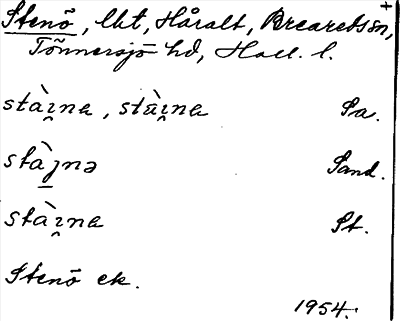 Stenö, lht, Håralt, Breareds sn,
Tönnersjö hd, Hall. l.
stàɪ̯na, stàɪ̯na Sa.
stàȷnə Sand.
stàɪ̯na St.
Stenö ek.
1954.